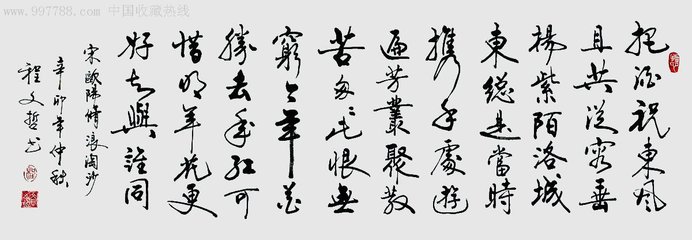 www.997788.com 中国收藏热线
把酒祝東風
且共從容垂
楊紫陌洛城
東總是當時
携手處遊
遍芳叢聚散
苦匆匆此恨無
窮今年花
勝去年紅可
惜明年花更
好知與誰同
宋歐陽脩浪淘沙
辛卯年仲秋
程文哲书